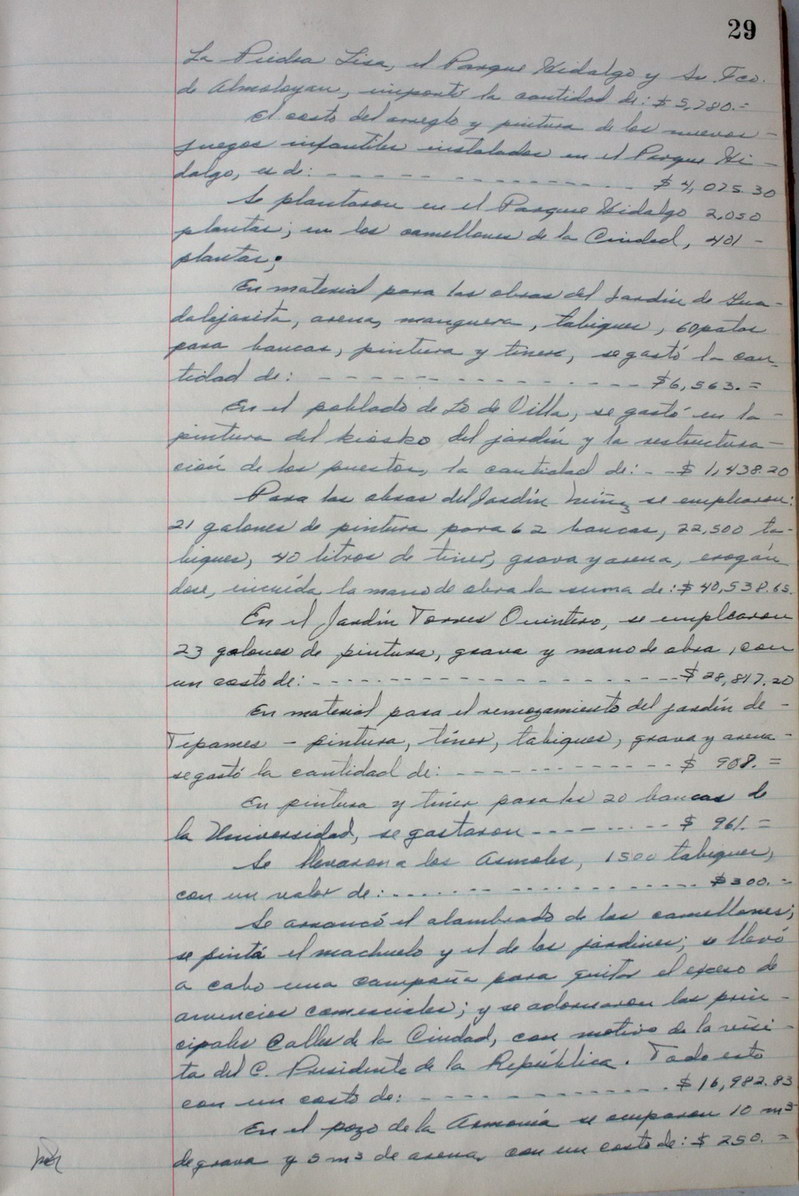 29
La Piedra Lisa, el Parque Hidalgo y Sn. Fco.
de Almoloyan, importó la cantidad de: $ 5,780.=
El costo del arreglo y pintura de los nuevos -
juegos infantiles instalados en el Parque Hi -
dalgo, es de: - - - - - - - - - - - - - - - $ 4,075.30
Se plantaron en el Parque Hidalgo 2,050
plantas; en los camellones de la Ciudad, 401 -
plantas;
En material para las obras del Jardín de Gua -
dalajarita, arena, manguera, tabiques, 60 patas
para bancas, pintura y tiner, se gastó la can-
tidad de: - - - - - - - - - - - - - - - $6,563.=
En el poblado de Lo de Villa, se gastó en la -
pintura del kiosko del jardín y la restructura -
ción de los puestos, la cantidad de: - - $ 1,438.20
Para las obras del Jardín Núñez se emplearon:
21 galones de pintura para 62 bancas, 22,500 ta-
biques, 40 litros de tiner, grava y arena, erogán
dose, incuída la mano de obra la suma de: $ 40,538.65.
En el Jardín Torres Quintero, se emplearon
23 galones de pintura, grava y mano de obra, con
un costo de: - - - - - - - - - - - - - - - - - - $ 28,817.20
En material para el remozamiento del jardín de -
Tepames - pintura, tíner, tabiques, grava y arena -
se gastó la cantidad de: - - - - - - - - - - - $ 908.=
En pintura y tiner para las 20 bancas de
la Universidad, se gastaron - - - - - - - $ 961.=
Se llevaron a los Asmoles, 1500 tabiques,
con un valor de: - - - - - - - - - - - - - - - $300.=
Se arrancó el alambrado de los camellones;
se pintó el machuelo y el de los jardines; se llevó
a cabo una campaña para quitar el exceso de
anuncios comerciales; y se adornaron las prin -
cipales Calles de la Ciudad, con motivo de la visi -
ta del C. Presidente de la República. Todo esto
con un costo de: - - - - - - - - - - - - $ 16,982.83
En el pozo de la Armonía se ocuparon 10 m3
de grava y 5 m3 de arena, con un costo de: $ 250.=